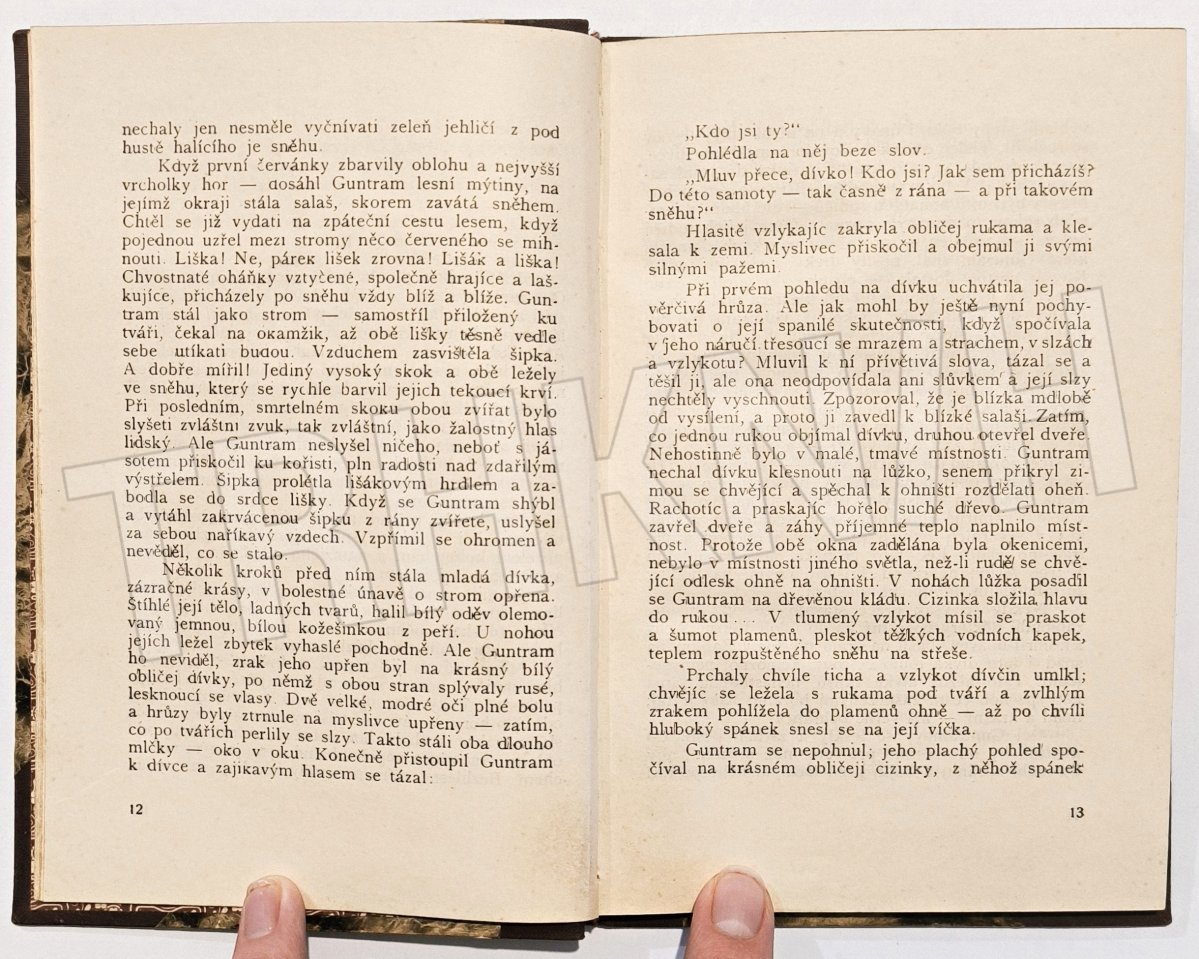 nechaly jen nesměle vyčnívati zeleň jehličí z pod
hustě halícího je sněhu.
Když první červánky zbarvily oblohu a nejvyšší
vrcholky hor — dosáhl Guntram lesní mýtiny, na
jejímž okraji stála salaš, skorem zavátá sněhem.
Chtěl se již vydati na zpáteční cestu lesem, když
pojednou uzřel mezi stromy něco červeného se mih-
nouti. Liška! Ne, párek lišek zrovna! Lišák a liška!
Chvostnaté oháňky vztyčené, společně hrajíce a laš-
kujíce, přicházely po sněhu vždy blíž a blíže. Gun-
tram stál jako strom — samostříl přiložený ku
tváři, čekal na okamžik, až obě lišky těsně vedle
sebe utíkati budou. Vzduchem zasvištěla šipka.
A dobře mířil! Jediný vysoký skok a obě ležely
ve sněhu, který se rychle barvil jejich tekoucí krví.
Při posledním, smrtelném skoku obou zvířat bylo
slyšeti zvláštní zvuk, tak zvláštní, jako žalostný hlas
lidský. Ale Guntram neslyšel ničeho, neboť s já-
sotem přiskočil ku kořisti, pln radosti nad zdařilým
výstřelem. Šipka prolétla lišákovým hrdlem a za-
bodla se do srdce lišky. Když se Guntram shýbl
a vytáhl zakrvácenou šipku z rány zvířete, uslyšel
za sebou naříkavý vzdech. Vzpřímil se ohromen a
nevěděl, co se stalo.
Několik kroků před ním stála mladá dívka,
zázračné krásy, v bolestné únavě o strom opřena.
Štíhlé její tělo, ladných tvarů, halil bílý oděv olemo-
vaný jemnou, bílou kožešinkou z peří. U nohou
jejích ležel zbytek vyhaslé pochodně. Ale Guntram
ho neviděl, zrak jeho upřen byl na krásný bílý
obličej dívky, po němž s obou stran splývaly rusé,
lesknoucí se vlasy. Dvě velké, modré oči plné bolu
a hrůzy byly ztrnule na myslivce upřeny — zatím,
co po tvářích perlily se slzy. Takto stáli oba dlouho
mlčky — oko v oku. Konečně přistoupil Guntram
k dívce a zajikavým hlasem se tázal:
12
„Kdo jsi ty?“
Pohlédla na něj beze slov.
„Mluv přece, dívko! Kdo jsi? Jak sem přicházíš?
Do této samoty — tak časně z rána — a při takovém
sněhu?“
Hlasitě vzlykajíc zakryla obličej rukama a kle-
sala k zemi. Myslivec přiskočil a obejmul ji svými
silnými pažemi.
Při prvém pohledu na dívku uchvátila jej po-
věrčivá hrůza. Ale jak mohl by ještě nyní pochy-
bovati o její spanilé skutečnosti, když spočívala
v jeho náručí třesoucí se mrazem a strachem, v slzách
a vzlykotu? Mluvil k ní přívětivá slova, tázal se a
těšil ji, ale ona neodpovídala ani slůvkem a její slzy
nechtěly vyschnouti. Zpozoroval, že je blízka mdlobě
od vysílení, a proto ji zavedl k blízké salaši. Zatím,
co jednou rukou objímal dívku, druhou otevřel dveře.
Nehostinně bylo v malé, tmavé místnosti. Guntram
nechal dívku klesnouti na lůžko, senem přikryl zi-
mou se chvějící a spěchal k ohništi rozdělati oheň.
Rachotíc a praskajíc hořelo suché dřevo. Guntram
zavřel dveře a záhy příjemné teplo naplnilo míst-
nost. Protože obě okna zadělána byla okenicemi,
nebylo v místnosti jiného světla, než-li rudě se chvě-
jící odlesk ohně na ohništi. V nohách lůžka posadil
se Guntram na dřevěnou kládu. Cizinka složila hlavu
do rukou... V tlumený vzlykot mísil se praskot
a šumot plamenů, pleskot těžkých vodních kapek,
teplem rozpuštěného sněhu na střeše.
Prchaly chvíle ticha a vzlykot dívčin umlkl;
chvějíc se ležela s rukama pod tváří a zvlhlým
zrakem pohlížela do plamenů ohně — až po chvíli
hluboký spánek snesl se na její víčka.
Guntram se nepohnul; jeho plachý pohled spo-
číval na krásném obličeji cizinky, z něhož spánek
13
TRHKNIH